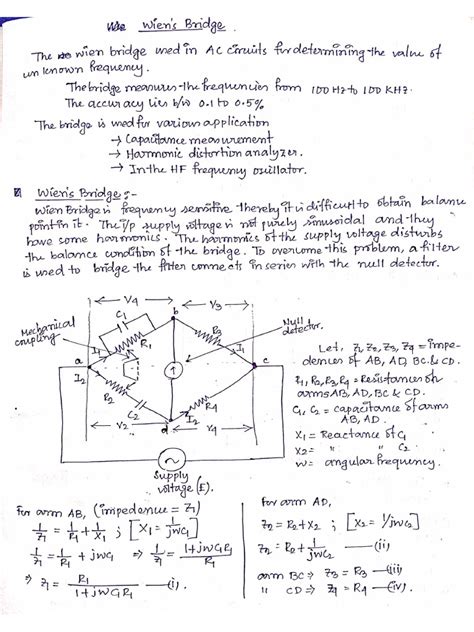 Wien's Bridge.
The wien bridge used in AC circuits for determining the value of
unknown frequency.
The bridge measures the frequencies from 100 Hz to 100 KHz.
The accuracy lies b/w 0.1 to 0.5%
The bridge is used for various application
→ Capacitance measurement
→ Harmonic distortion analyzer.
→ In the HF frequency oscillator.
Wien's Bridge:-
Wien Bridge is frequency sensitive thereby it is difficult to obtain balance
point in it. The i/p supply voltage is not purely sinusoidal and they
have some harmonics. The harmonics of the supply voltage disturbs
the balance condition of the bridge. To overcome this problem, a filter
is used to bridge the filter connects in series with the null detector.
V4
V3
C1
b
Mechanical
coupling
R1
R3
Null
detector.
I1
I1
a
c
I2
R2
C2
I2
R4
d
V2
V4
Supply
voltage (E).
Let, Z1 Z2, Z3, Z4 = impe-
dences of AB, AD, BC & CD.
R1, R2, R3, R4 = Resistances of
arms AB, AD, BC & CD.
C1, C2 = capacitance of arms
AB, AD.
X1 = Reactance of C1
X2 = " " C2
w = angular frequency.
For arm AB, (impedence = Z1)
1/Z1 = 1/R1 + 1/X1 ; [X1 = 1/jwC1]
1/Z1 = 1/R1 + jwC1 = (1+jwC1R1)/R1
⇒ Z1 = R1/(1+jwC1R1) — (i).
For arm AD,
Z2 = R2 + X2 ; [X2 = 1/jwC2]
Z2 = R2 + 1/jwC2 — (ii)
arm BC ⇒ Z3 = R3 — (iii)
" CD ⇒ Z4 = R4 — (iv).